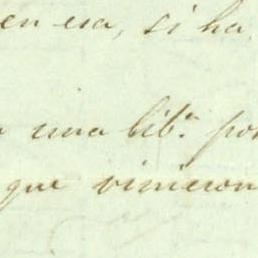 en esa, si ha
una lib.ª por
que vinieron